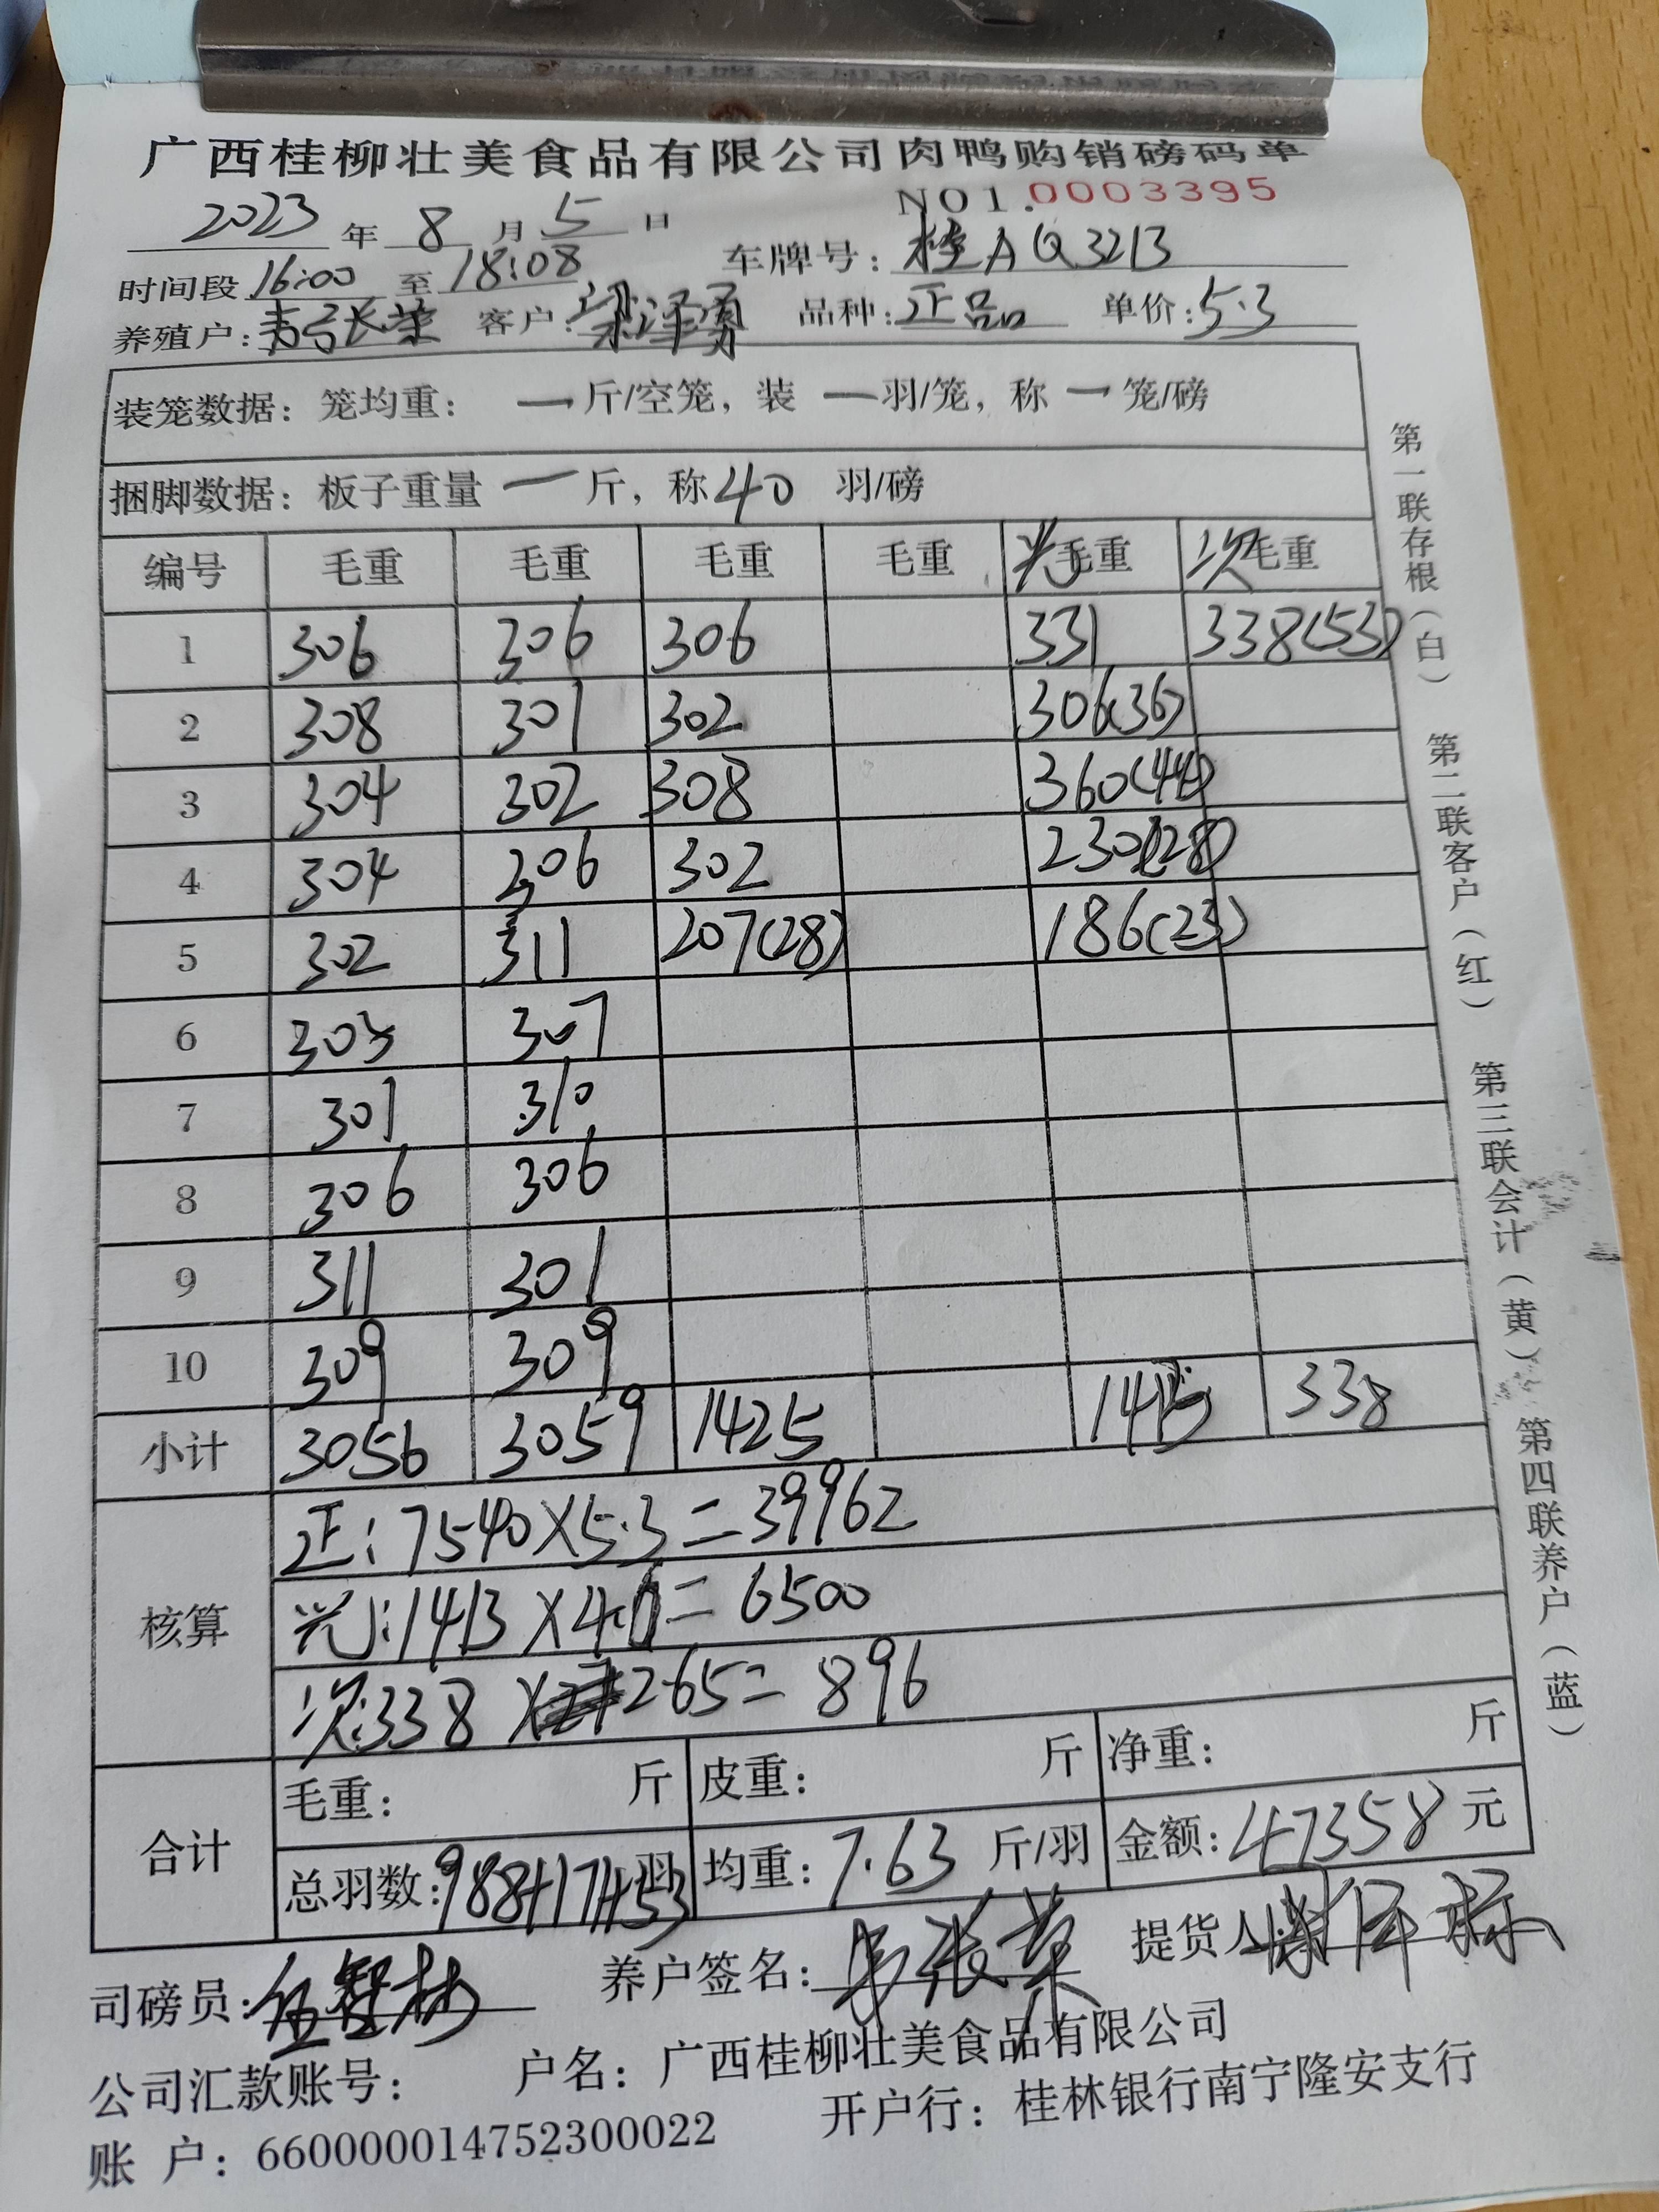 广西桂柳壮美食品有限公司肉鸭购销磅码单
NO1.0003395
2023 年 8 月 5 日
时间段 16:00 至 18:08 车牌号: 桂AQ3213
养殖户: 韦张荣 客户: 梁泽勇 品种: 正品 单价: 5.3
装笼数据: 笼均重: 一 斤/空笼, 装 一 羽/笼, 称 一 笼/磅
捆脚数据: 板子重量 一 斤, 称 40 羽/磅
编号 毛重 毛重 毛重 毛重 光毛重 次毛重
1 306 306 306 331 338(53)
2 308 301 302 306(36)
3 304 302 308 360(44)
4 304 306 302 230(28)
5 302 311 207(28) 186(23)
6 305 307
7 301 310
8 306 306
9 311 301
10 309 309
小计 3056 3059 1425 1413 338
核算
正: 7540×5.3=39962
光: 1413×4.6=6500
次: 338×2.65=896
合计
毛重: 斤 皮重: 斤 净重: 斤
总羽数: 988+171+53 羽 均重: 7.63 斤/羽 金额: 47358 元
司磅员: 养户签名: 韦张荣 提货人:
公司汇款账号: 户名: 广西桂柳壮美食品有限公司
账 户: 660000014752300022 开户行: 桂林银行南宁隆安支行
第一联存根(白) 第二联客户(红) 第三联会计(黄) 第四联养户(蓝)